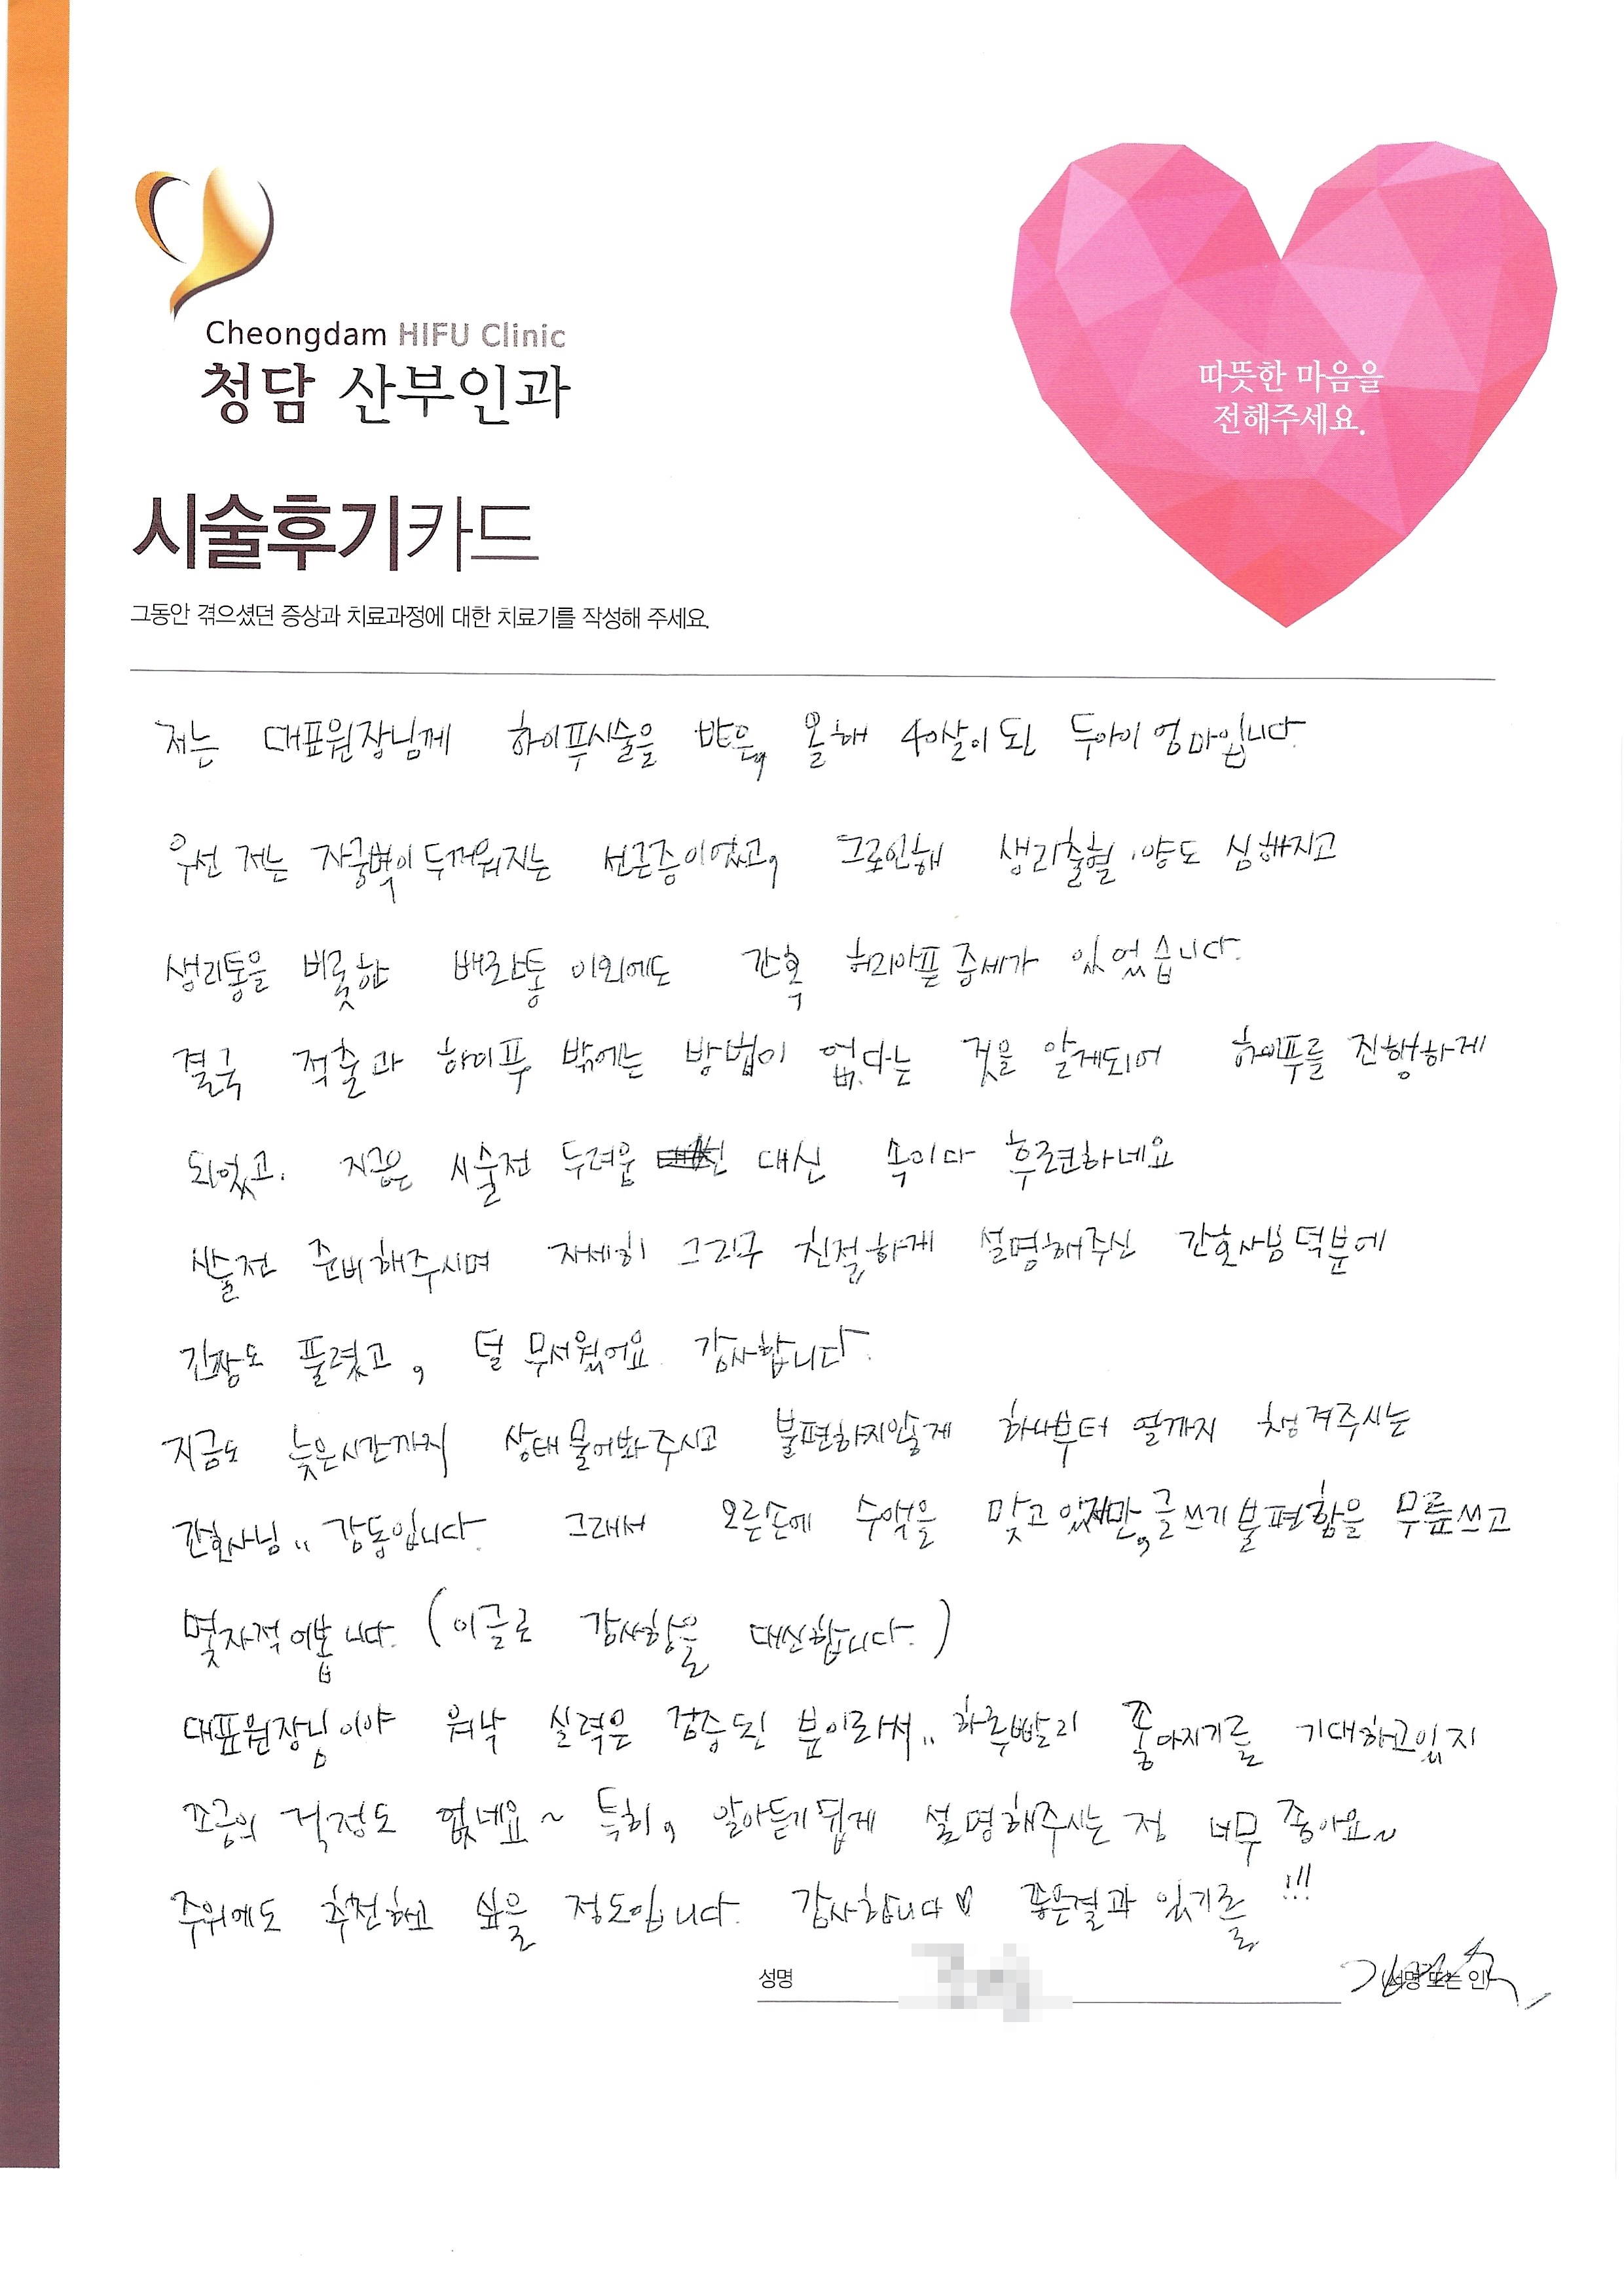 Cheongdam HIFU Clinic
청담 산부인과
따뜻한 마음을
전해주세요.
시술후기카드
그동안 겪으셨던 증상과 치료과정에 대한 치료기를 작성해 주세요.
저는 대표원장님께 하이푸시술을 받은, 올해 40살이 된 두아이 엄마입니다.
우선 저는 자궁벽이 두꺼워지는 선근증이었고, 그로인해 생리출혈 양도 심해지고
생리통을 비롯한 배란통 이외에도 간혹 허리아픈 증세가 있었습니다.
결국 적출과 하이푸 밖에는 방법이 없다는 것을 알게되어 하이푸를 진행하게
되었고. 지금은 시술전 두려움 대신 속이다 후련하네요
시술전 준비해주시며 자세히 그리구 친절하게 설명해주신 간호사님 덕분에
긴장도 풀렸고, 덜 무서웠어요. 감사합니다.
지금도 늦은시간까지 상태 물어봐주시고 불편하지않게 하나부터 열까지 챙겨주시는
간호사님.. 감동입니다. 그래서 오른손에 수액을 맞고 있지만, 글쓰기 불편함을 무릅쓰고
몇자적어봅니다. (이글로 감사함을 대신합니다.)
대표원장님이야 워낙 실력은 검증된 분이라서.. 하루빨리 좋아지기를 기대하고있지
조금의 걱정도 없네요~ 특히, 알아듣기쉽게 설명해주시는 점 너무 좋아요~
주위에도 추천하고 싶을 정도입니다. 감사합니다♡ 좋은결과 있기를!!!
성명
서명 또는 인